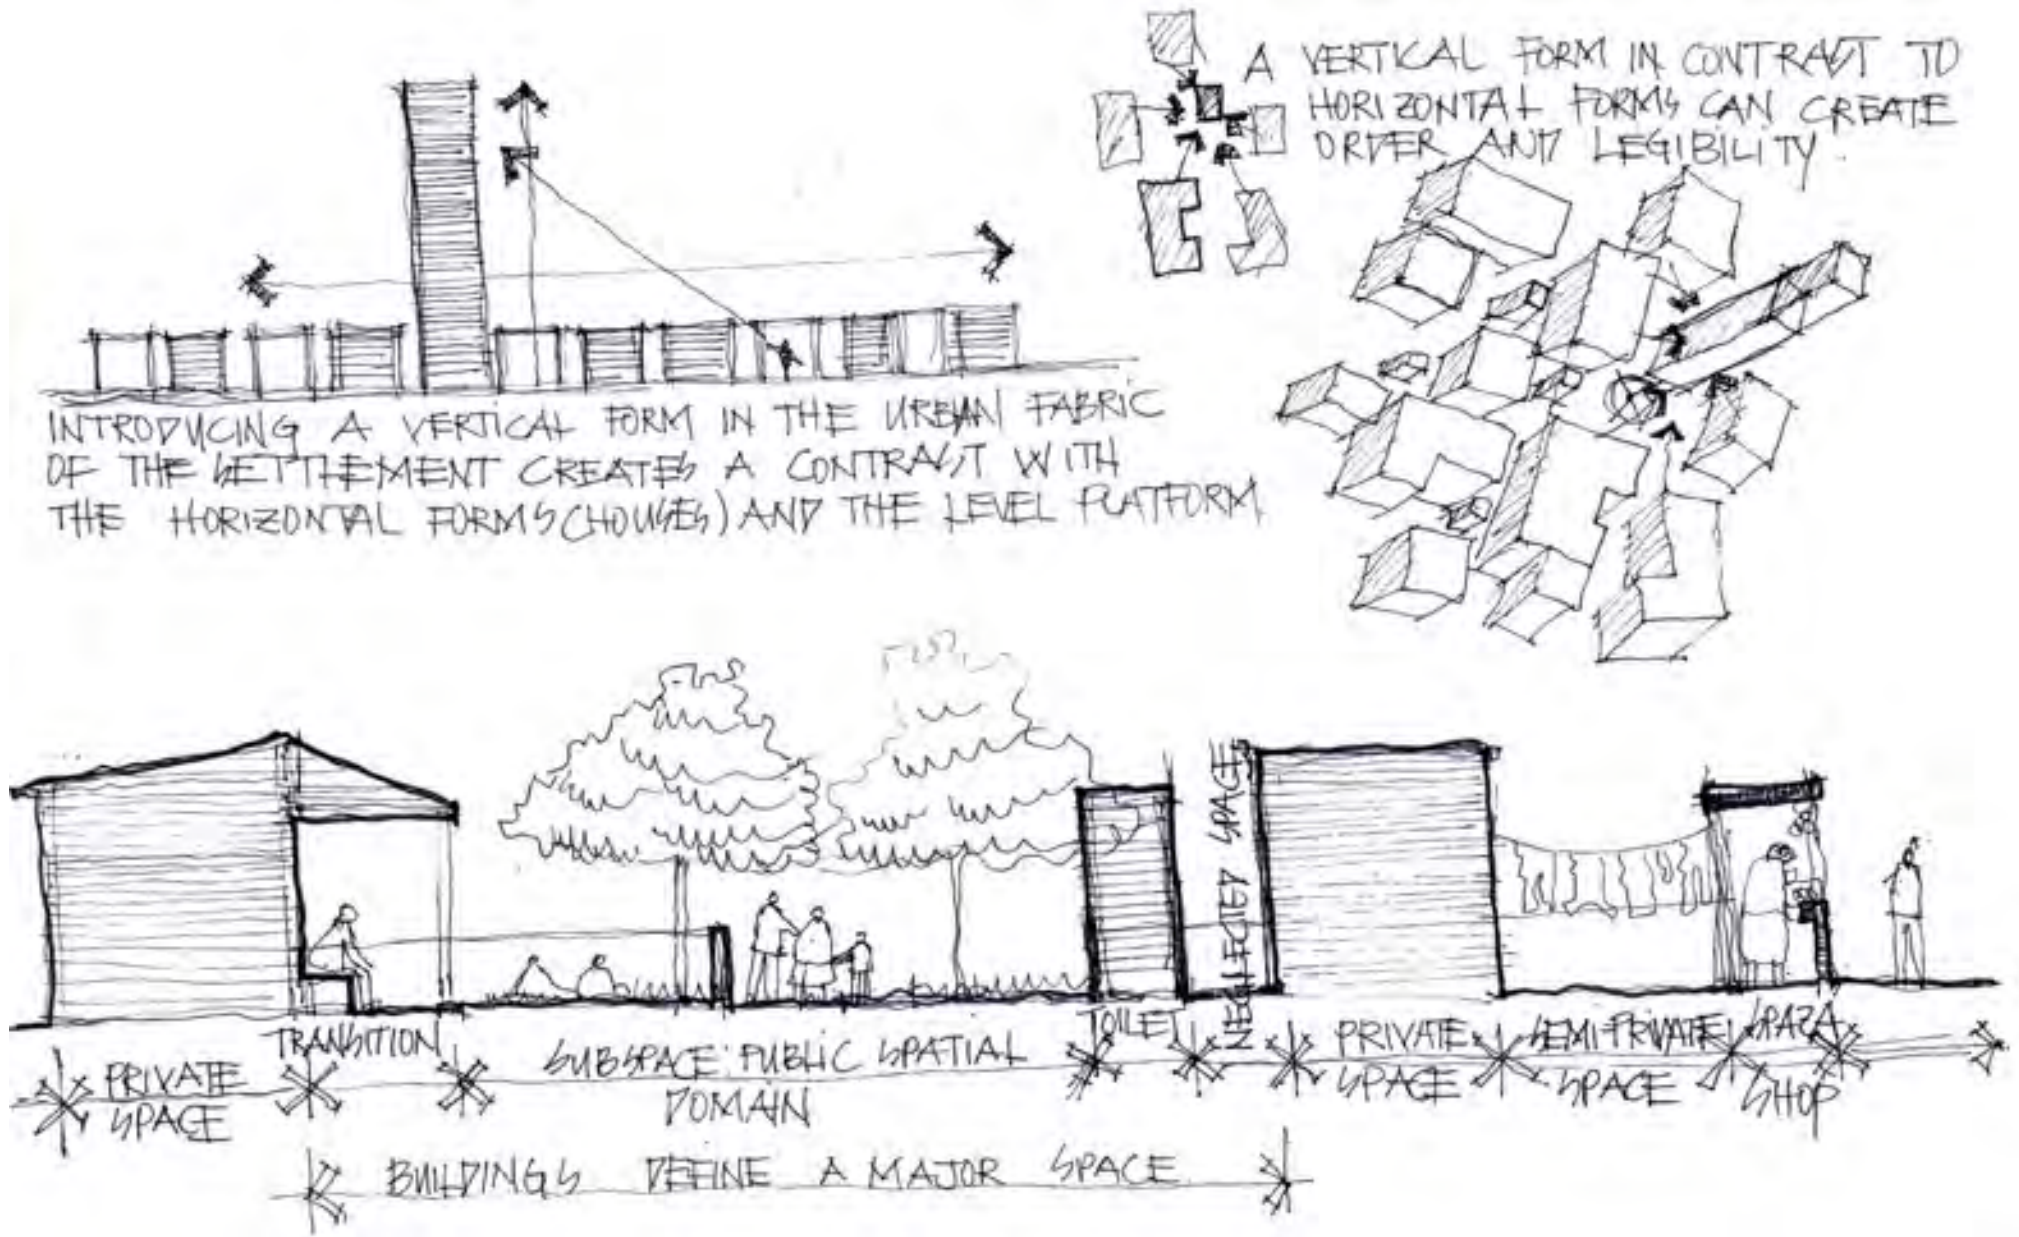 A VERTICAL FORM IN CONTRAST TO
HORIZONTAL FORMS CAN CREATE
ORDER AND LEGIBILITY.
INTRODUCING A VERTICAL FORM IN THE URBAN FABRIC
OF THE SETTLEMENT CREATES A CONTRAST WITH
THE HORIZONTAL FORMS (HOUSES) AND THE LEVEL PLATFORM
NEGLECTED SPACE
PRIVATE
SPACE
TRANSITION
SUBSPACE: PUBLIC SPATIAL
DOMAIN
TOILET
PRIVATE
SPACE
SEMI-PRIVATE
SPACE
SPAZA
SHOP
BUILDINGS DEFINE A MAJOR SPACE